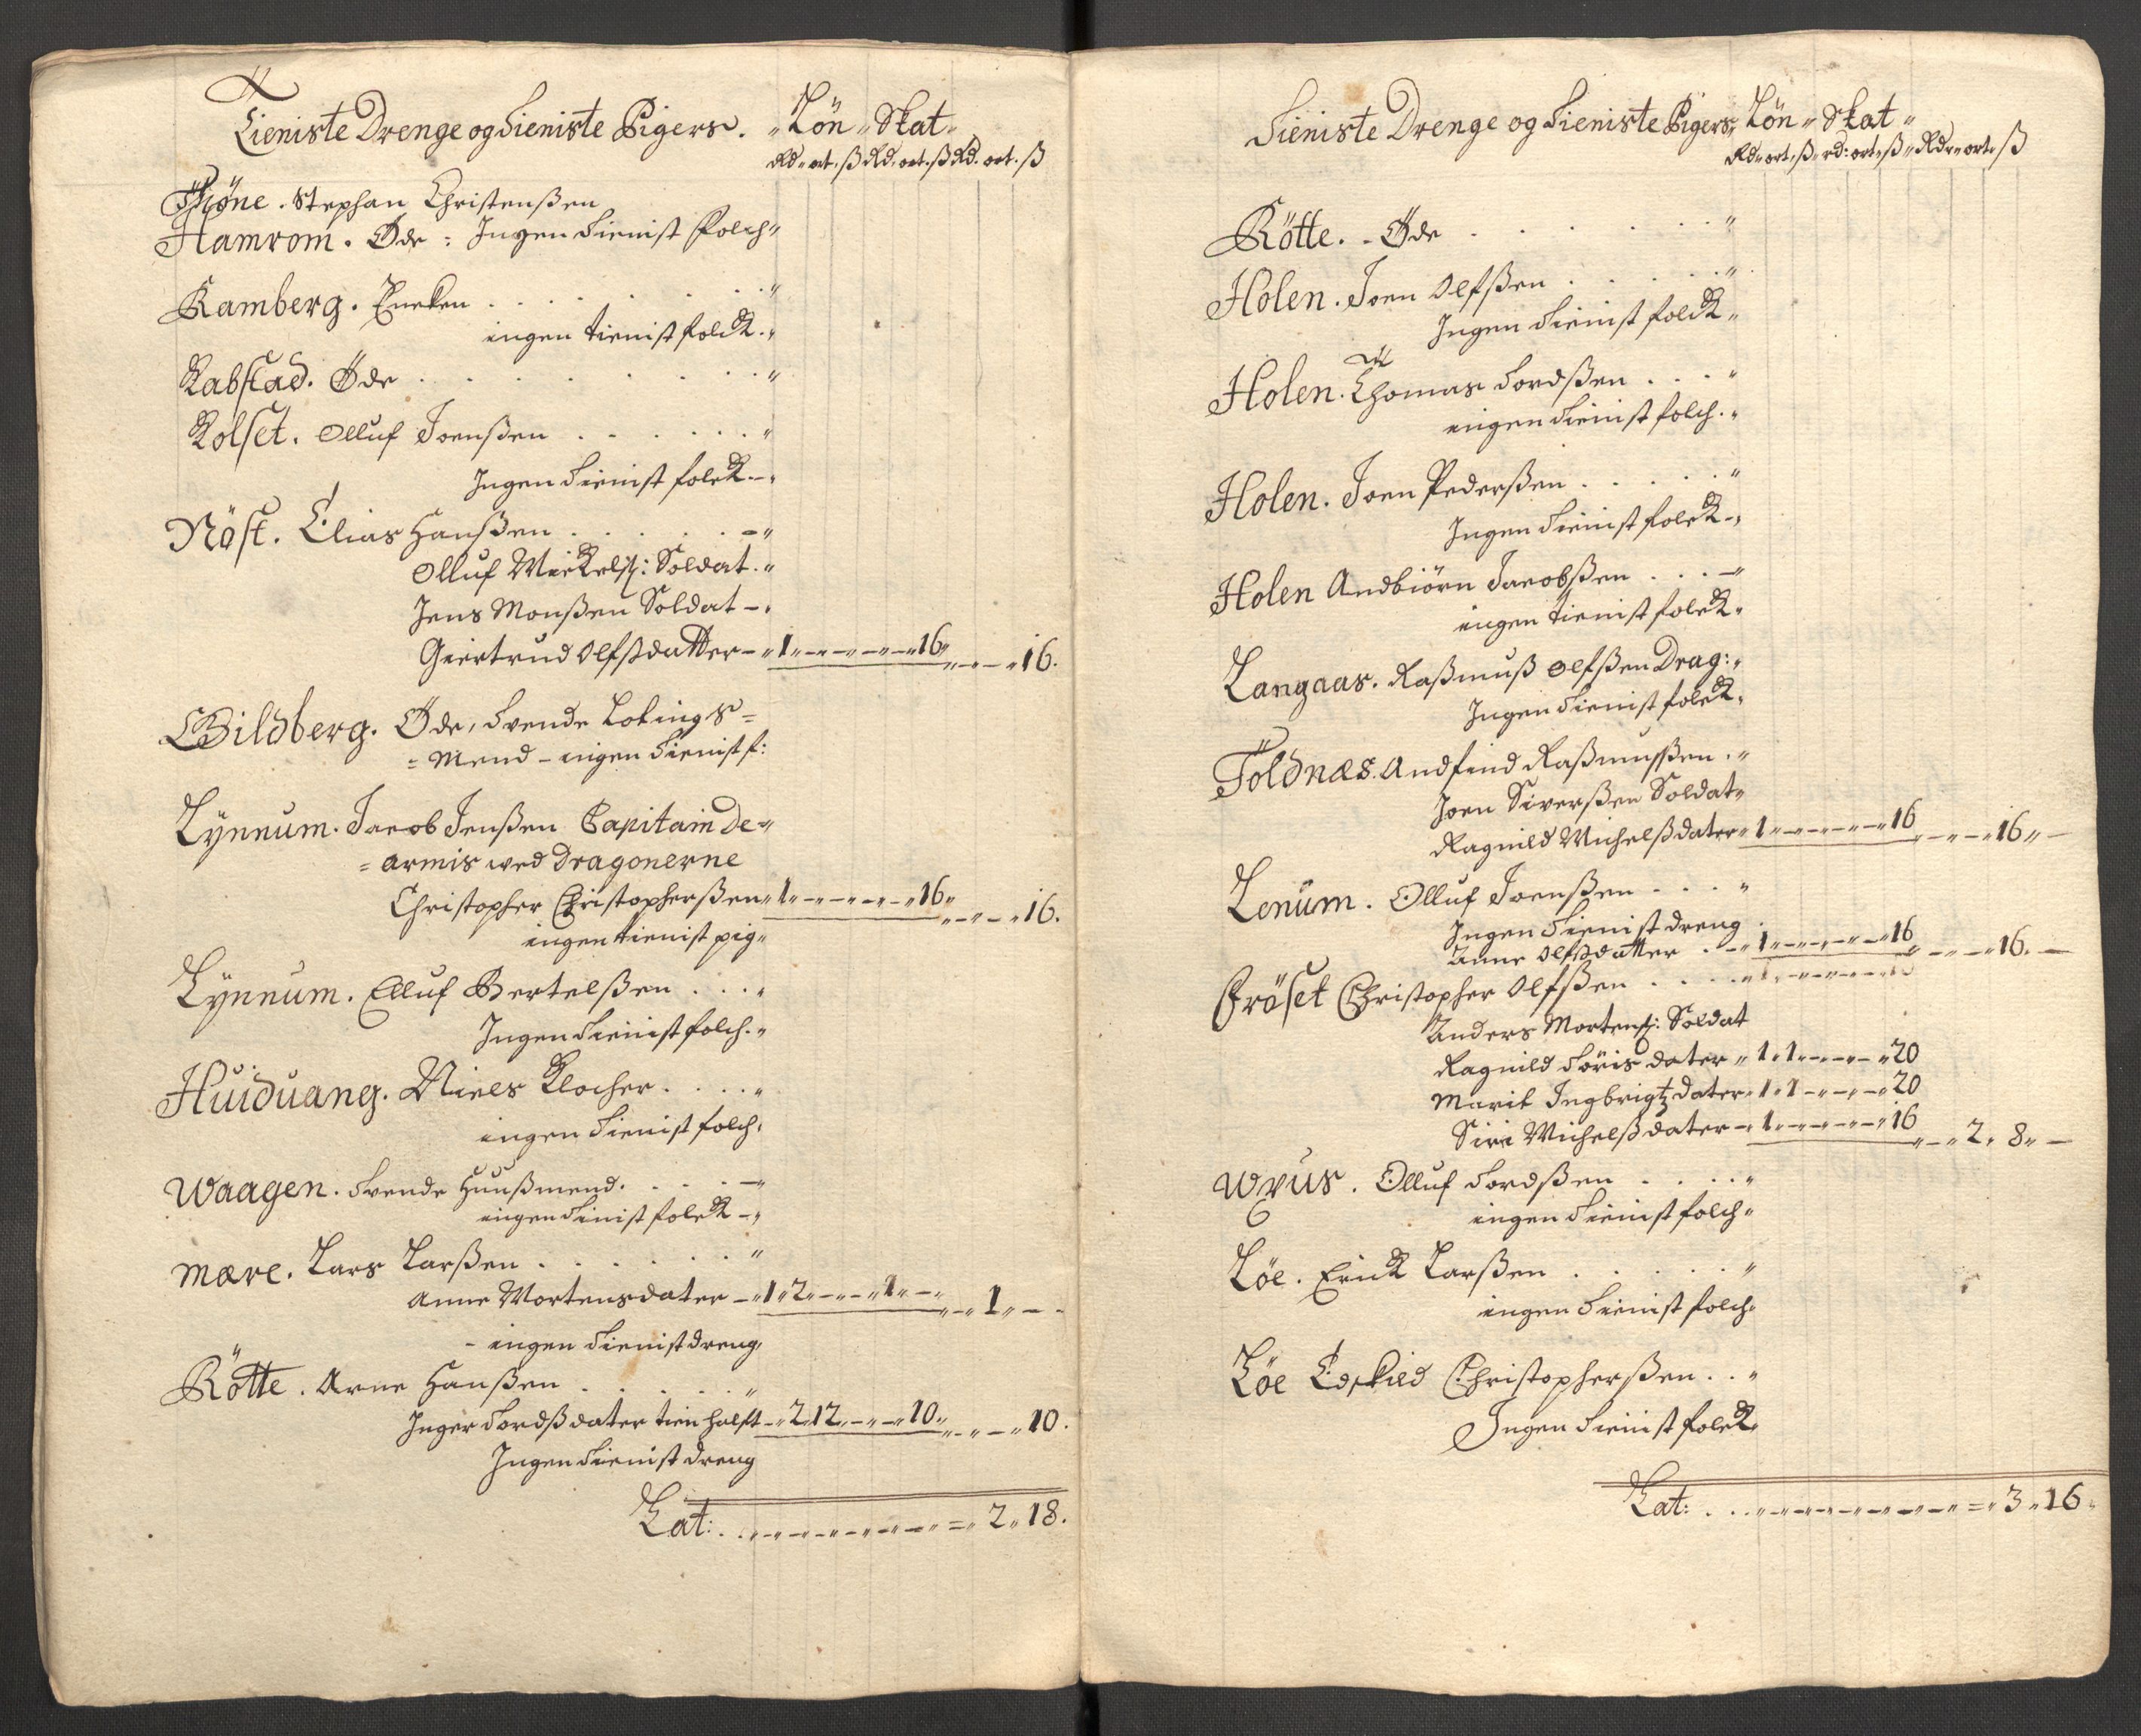 Tieniste Drenge og Tieniste Pigers. Lön Skat
Rd ort ß Rd. ort. ß Rd. ort. ß
Thöne. Stephan Christenßen
Hamrom. Öde: Ingen Tienist Folch
Kamberg. Encken
ingen tienist folck
Rabstad. Öde
Rolset. Olluf Joenßen
Ingen Tienist folck
Nöst. Elias Hanßen
Olluf Mickelß: Soldat
Jens Monßen Soldat
Giertrud Olfsdatter 1 16 16.
Bildberg. Öde, Svende Lotings=
=Mend - ingen Tienist f:
Lÿnnum. Jacob Jenßen Capitain de=
=armis wed Dragonerne
Christopher Christopherßen 1 16 16.
ingen tienist pig
Lÿnnum. Elluf Bertelßen
Ingen Tienist folch.
Huiduang. Niels Klocher
ingen Tienist folch.
Waagen. Svende Huußmend
ingen Tinist folck
Mære. Lars Larßen
Anne Mortensdater 1 2 1 1
- ingen Tienist dreng
Rötte. Arne Hanßen
Inger Tordßdater tien halft 2 12 10 10.
Ingen Tienist dreng
Lat: 2 18.
Tieniste Drenge og Tieniste Pigers Lön Skat
Rd ort ß rd: ort ß Rdr ort ß
Rötte. Öde
Holen. Joen Olfßen
Ingen Tienist folck
Holen. Thomas Tordßen
ingen Tienist folch.
Holen. Joen Pederßen
Ingen Tienist folck
Holen Andbiörn Jacobßen
ingen tienist folck
Langaas. Raßmuß Olfßen Drag:
Ingen Tienist folck
Foldnæs. Andfind Raßmusßen
Joen Siverßen Soldat
Ragnild Michelßdater 1 16 16
Lenum. Olluf Joenßen
Ingen Tienist dreng
Anne Olfsdatter 1 16 16.
Fröset Christopher Olfßen
Anders Mortenß: Soldat
Ragnild Törisdater 1 1 20
Marit Ingbrigtzdater 1 1 20
Siri Michelßdater 1 16 2 8
Wvus. Olluf Tordßen
ingen Tienist folch
Löe. Erick Larßen
ingen Tienist folch
Löe Eskild Christopherßen
Ingen Tienist folck
Lat: 3 16